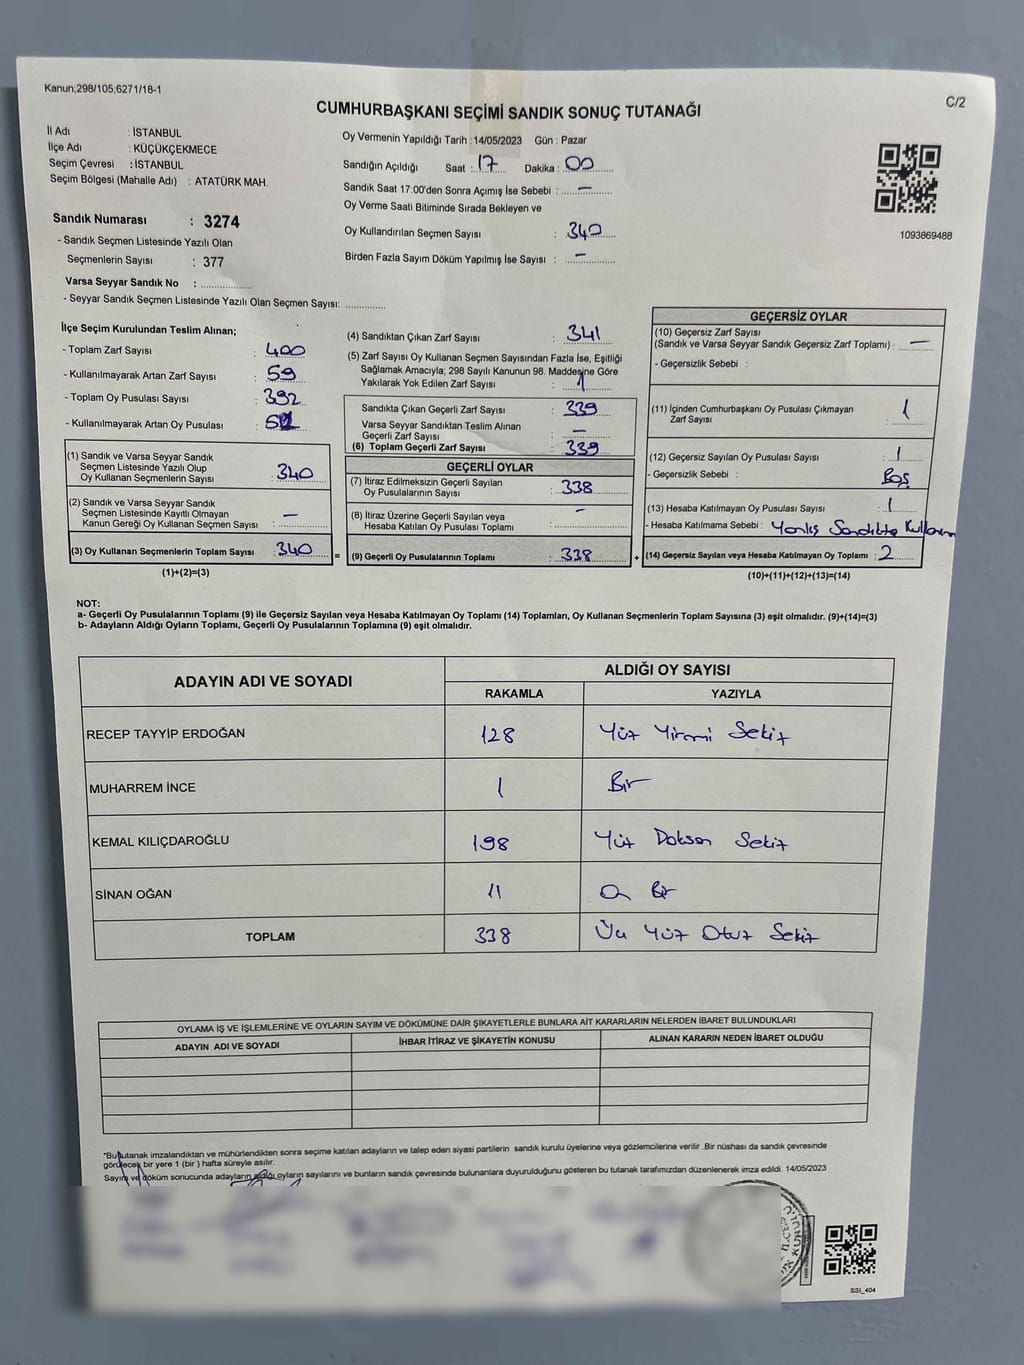 Kanun,298/105,6271/18-1
C/2
CUMHURBAŞKANI SEÇİMİ SANDIK SONUÇ TUTANAĞI
İl Adı : İSTANBUL
İlçe Adı : KÜÇÜKÇEKMECE
Seçim Çevresi : İSTANBUL
Seçim Bölgesi (Mahalle Adı) : ATATÜRK MAH.
Sandık Numarası : 3274
- Sandık Seçmen Listesinde Yazılı Olan
Seçmenlerin Sayısı : 377
Varsa Seyyar Sandık No :
- Seyyar Sandık Seçmen Listesinde Yazılı Olan Seçmen Sayısı:
Oy Vermenin Yapıldığı Tarih : 14/05/2023 Gün : Pazar
Sandığın Açıldığı Saat : 17 Dakika : 00
Sandık Saat 17:00'den Sonra Açımış İse Sebebi : —
Oy Verme Saati Bitiminde Sırada Bekleyen ve
Oy Kullandırılan Seçmen Sayısı : 340
Birden Fazla Sayım Döküm Yapılmış İse Sayısı : —
1093869488
İlçe Seçim Kurulundan Teslim Alınan;
- Toplam Zarf Sayısı : 400
- Kullanılmayarak Artan Zarf Sayısı : 59
- Toplam Oy Pusulası Sayısı : 392
- Kullanılmayarak Artan Oy Pusulası :
(1) Sandık ve Varsa Seyyar Sandık
Seçmen Listesinde Yazılı Olup
Oy Kullanan Seçmenlerin Sayısı : 340
(2) Sandık ve Varsa Seyyar Sandık
Seçmen Listesinde Kayıtlı Olmayan
Kanun Gereği Oy Kullanan Seçmen Sayısı : —
(3) Oy Kullanan Seçmenlerin Toplam Sayısı : 340
(1)+(2)=(3)
=
(4) Sandıktan Çıkan Zarf Sayısı : 341
(5) Zarf Sayısı Oy Kullanan Seçmen Sayısından Fazla İse, Eşitliği
Sağlamak Amacıyla; 298 Sayılı Kanunun 98. Maddesine Göre
Yakılarak Yok Edilen Zarf Sayısı : 1
Sandıkta Çıkan Geçerli Zarf Sayısı : 339
Varsa Seyyar Sandıktan Teslim Alınan
Geçerli Zarf Sayısı : —
(6) Toplam Geçerli Zarf Sayısı : 339
GEÇERLİ OYLAR
(7) İtiraz Edilmeksizin Geçerli Sayılan
Oy Pusulalarının Sayısı : 338
(8) İtiraz Üzerine Geçerli Sayılan veya
Hesaba Katılan Oy Pusulası Toplamı : —
(9) Geçerli Oy Pusulalarının Toplamı : 338
+
GEÇERSİZ OYLAR
(10) Geçersiz Zarf Sayısı
(Sandık ve Varsa Seyyar Sandık Geçersiz Zarf Toplamı) : —
- Geçersizlik Sebebi :
(11) İçinden Cumhurbaşkanı Oy Pusulası Çıkmayan
Zarf Sayısı : 1
(12) Geçersiz Sayılan Oy Pusulası Sayısı : 1
- Geçersizlik Sebebi : Boş
(13) Hesaba Katılmayan Oy Pusulası Sayısı : 1
- Hesaba Katılmama Sebebi : Yanlış Sandıkta Kullanım
(14) Geçersiz Sayılan veya Hesaba Katılmayan Oy Toplamı : 2
(10)+(11)+(12)+(13)=(14)
NOT:
a- Geçerli Oy Pusulalarının Toplamı (9) ile Geçersiz Sayılan veya Hesaba Katılmayan Oy Toplamı (14) Toplamları, Oy Kullanan Seçmenlerin Toplam Sayısına (3) eşit olmalıdır. (9)+(14)=(3)
b- Adayların Aldığı Oyların Toplamı, Geçerli Oy Pusulalarının Toplamına (9) eşit olmalıdır.
ADAYIN ADI VE SOYADI
ALDIĞI OY SAYISI
RAKAMLA YAZIYLA
RECEP TAYYİP ERDOĞAN 128 Yüz Yirmi Sekiz
MUHARREM İNCE 1 Bir
KEMAL KILIÇDAROĞLU 198 Yüz Doksan Sekiz
SİNAN OĞAN 11 On Bir
TOPLAM 338 Üç Yüz Otuz Sekiz
OYLAMA İŞ VE İŞLEMLERİNE VE OYLARIN SAYIM VE DÖKÜMÜNE DAİR ŞİKAYETLERLE BUNLARA AİT KARARLARIN NELERDEN İBARET BULUNDUKLARI
ADAYIN ADI VE SOYADI İHBAR İTİRAZ VE ŞİKAYETİN KONUSU ALINAN KARARIN NEDEN İBARET OLDUĞU
*Bu tutanak imzalandıktan ve mühürlendikten sonra seçime katılan adayların ve talep eden siyasi partilerin sandık kurulu üyelerine veya gözlemcilerine verilir .Bir nüshası da sandık çevresinde
görülecek bir yere 1 (bir ) hafta süreyle asılır.
Sayım ve döküm sonucunda adayların aldığı oyların sayılarını ve bunların sandık çevresinde bulunanlara duyurulduğunu gösteren bu tutanak tarafımızdan düzenlenerek imza edildi. 14/05/2023
SSI_404